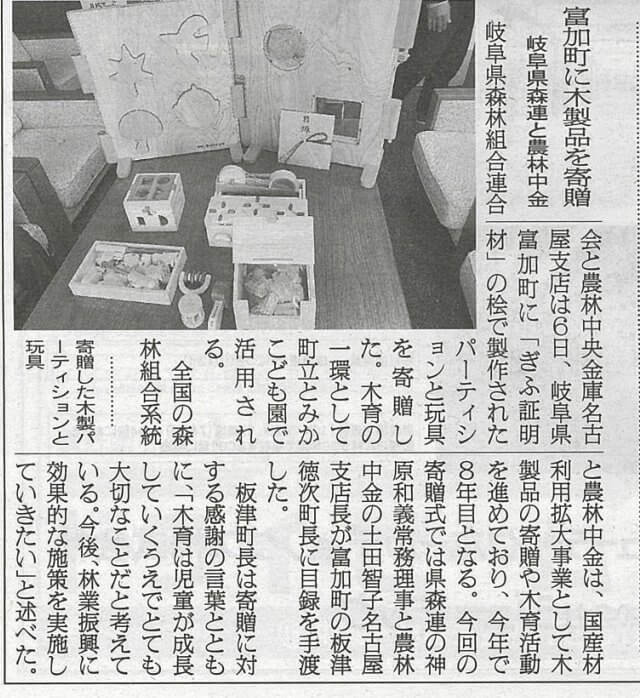 富加町に木製品を寄贈
岐阜県森連と農林中金
岐阜県森林組合連合
会と農林中央金庫名古
屋支店は6日、岐阜県
富加町に「ぎふ証明
材」の桧で製作された
パーティシ
ョンと玩具
を寄贈し
た。木育の
一環として
町立とみか
こども園で
活用され
る。
全国の森
林組合系統
と農林中金は、国産材
利用拡大事業として木
製品の寄贈や木育活動
を進めており、今年で
8年目となる。今回の
寄贈式では県森連の神
原和義常務理事と農林
中金の土田智子名古屋
支店長が富加町の板津
徳次町長に目録を手渡
した。
板津町長は寄贈に対
する感謝の言葉ととも
に、「木育は児童が成長
していくうえでとても
大切なことだと考えて
いる。今後、林業振興に
効果的な施策を実施し
ていきたい」と述べた。
寄贈した木製パ
ーティションと
玩具
目録